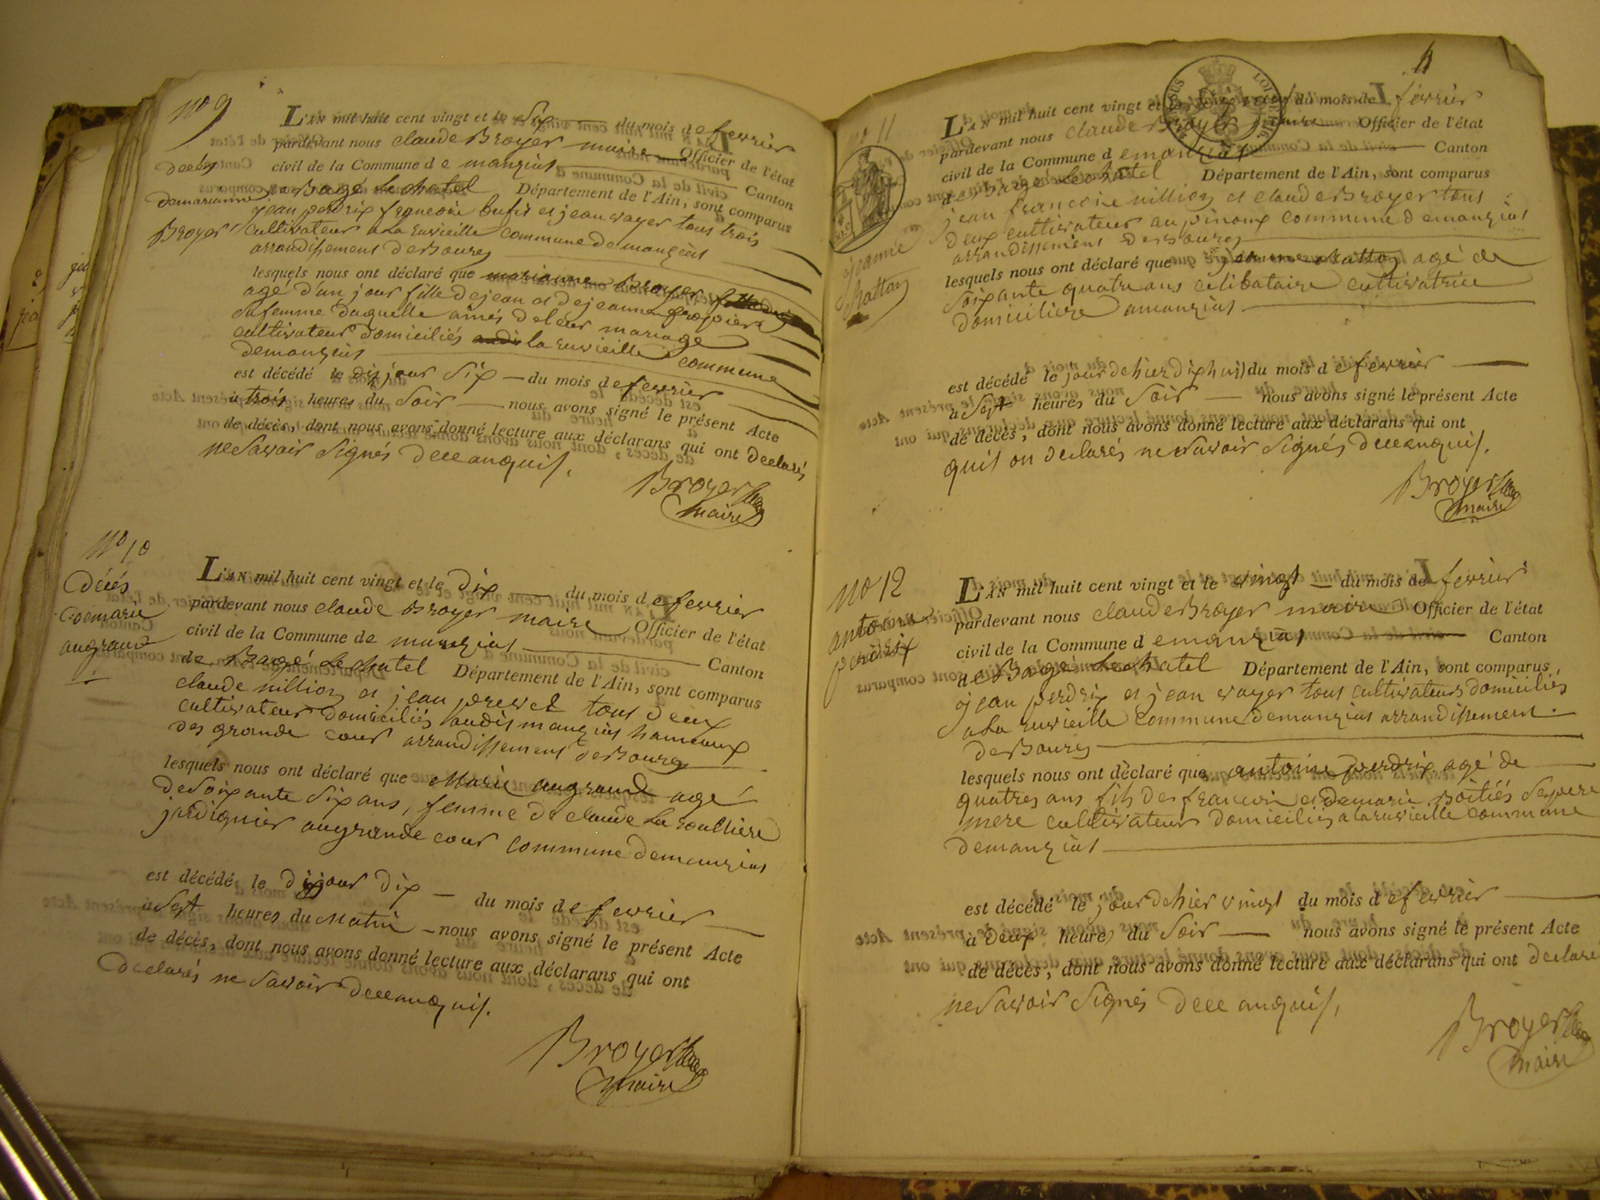 No 9
deces
demarianne
Broyer
L'AN mil huit cent vingt et le Six du mois de fevrier
pardevant nous claude Broyer maire Officier de l'état
civil de la Commune de manziat Canton
de Bagé Lechatel Département de l'Ain, sont comparus
jean perdrix francois bufit et jean voyer tous trois
cultivateur a La survieille commune de manziat
arrandissement de Bourg
lesquels nous ont déclaré que marianne Broyer
agé d'un jour fille de jean et de jeanne
sa femme daquelle ainés de leur mariage
cultivateur domiciliés la survieille commune
demanziat
est décédé le dijour Six du mois de fevrier
à trois heures du Soir nous avons signé le présent Acte
de décès, dont nous avons donné lecture aux déclarans qui ont declarés
ne Savoir Signés dece anquis.
Broyer
maire
No 10
Décés
de marie
augrand
L'AN mil huit cent vingt et le Dix du mois de fevrier
pardevant nous claude Broyer maire Officier de l'état
civil de la Commune de manziat Canton
de Bagé Lechatel Département de l'Ain, sont comparus
claude nillion et jean perret tous deux
cultivateur domiciliés audis manziat hameaux
des grande cour arrandissement de Bourg
lesquels nous ont déclaré que Marie augrand agé
de Soixante Six ans, femme de claude La Boulliere
jurdiquier augrande cour commune demanziat
est décédé le dijour dix du mois de fevrier
à Sept heures du Matin nous avons signé le présent Acte
de décès, dont nous avons donné lecture aux déclarans qui ont
declarés ne Savoir dece anquis.
Broyer
maire
11
jeanne
Ratton
L'AN mil huit cent vingt et le du mois de fevrier
pardevant nous claude Broyer maire Officier de l'état
civil de la Commune de manziat Canton
de Bagé Lechatel Département de l'Ain, sont comparus
jean francois nillion et claude Broyer tous
deux cultivateur au pinoux commune demanziat
arrandissement de Bourg
lesquels nous ont déclaré que jeanne Ratton agé de
Soixante quatre ans celibataire cultivatrice
domiciliée amanziat
est décédé le jour de hier dixhuit du mois de fevrier
à Sept heures du Soir nous avons signé le présent Acte
de décès, dont nous avons donné lecture aux déclarans qui ont
quis on declarés ne Savoir Signés dece anquis.
Broyer
maire
No 12
antoine
perdrix
L'AN mil huit cent vingt et le vingt du mois de fevrier
pardevant nous claude Broyer maire Officier de l'état
civil de la Commune de manziat Canton
de Bagé Lechatel Département de l'Ain, sont comparus
jean perdrix et jean voyer tous cultivateurs domiciliés
a La survieille commune demanziat arrandissement
de Bourg
lesquels nous ont déclaré que antoine perdrix agé de
quatres ans fils de francois et demarie Boitiés Se pere
mere cultivateur domiciliés a la survieille commune
demanziat
est décédé le jour dehier vingt du mois de fevrier
à Deux heures du Soir nous avons signé le présent Acte
de décès, dont nous avons donné lecture aux déclarans qui ont declaré
ne Savoir Signés dece anquis,
Broyer
maire